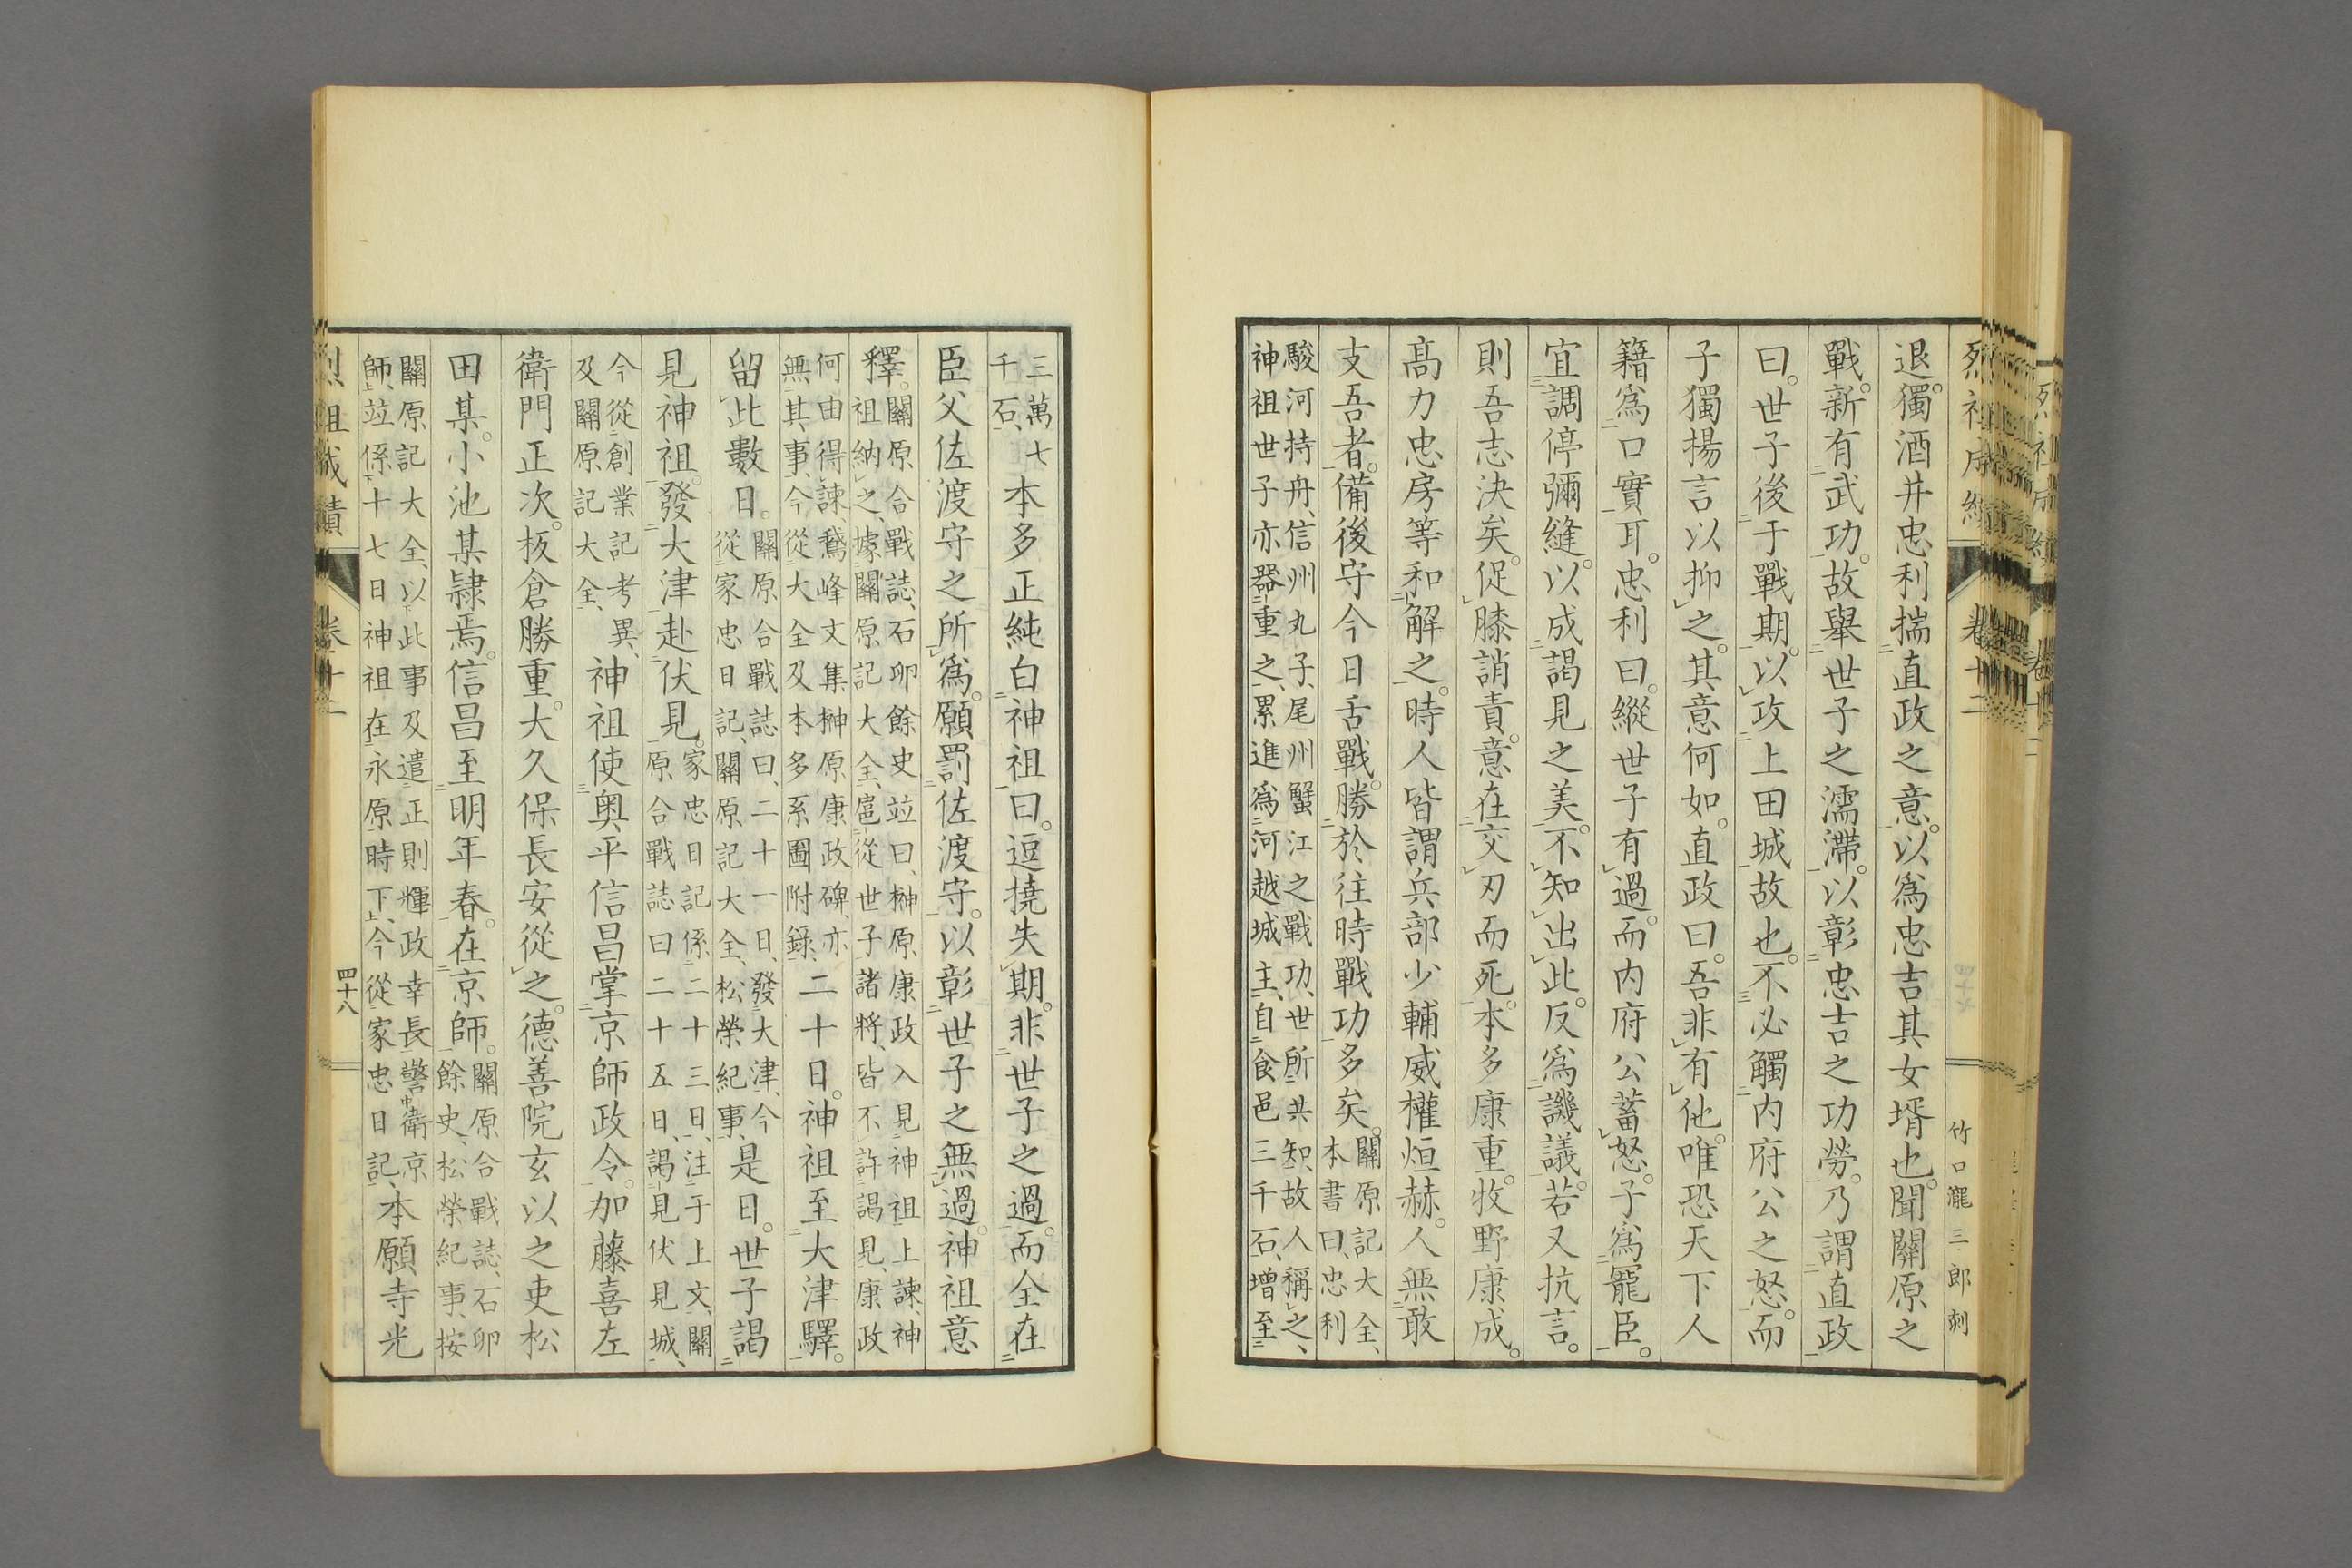 竹口瀧三郎刻
退。獨酒井忠利揣直政之意。以爲忠吉其女壻也。聞關原之
戰。新有武功。故舉世子之濡滯。以彰忠吉之功勞。乃謂直政
曰。世子後于戰期。以攻上田城故也。不必觸内府公之怒。而
子獨揚言以抑之。其意何如。直政曰。吾非有他。唯恐天下人
籍爲口實耳。忠利曰。縱世子有過。而内府公蓄怒。子爲寵臣。
宜調停彌縫。以成謁見之美。不知出此。反爲譏議。若又抗言。
則吾志決矣。促膝誚責。意在交刃而死。本多康重。牧野康成。
髙力忠房等和解之。時人皆謂兵部少輔威權烜赫。人無敢
支吾者。備後守今日舌戰。勝於往時戰功多矣。關原記大全、
本書曰、忠利
駿河持舟、信州丸子、尾州蟹江之戰功、世所共知、故人稱之、
神祖世子亦器重之、累進爲河越城主、自食邑三千石、増至
三萬七
千石、本多正純白神祖曰。逗撓失期。非世子之過。而全在
臣父佐渡守之所爲。願罰佐渡守。以彰世子之無過。神祖意
釋。關原合戰誌、石卵餘史竝曰、榊原康政入見神祖上諫、神
祖納之、據關原記大全、扈從世子諸將、皆不許謁見、康政
何由得諫、鵞峰文集榊原康政碑、亦
無其事、今從大全及本多系圖附錄、二十日。神祖至大津驛。
留此數日。關原合戰誌曰、二十一日、發大津、今
從家忠日記、關原記大全、松榮紀事、是日。世子謁
見神祖。發大津赴伏見。家忠日記係二十三日、注于上文、關
原合戰誌曰二十五日、謁見伏見城、
今從創業記考異、
及關原記大全、神祖使奥平信昌掌京師政令。加藤喜左
衛門正次。板倉勝重。大久保長安從之。德善院玄以之吏松
田某。小池某隷焉。信昌至明年春。在京師。關原合戰誌、石卵
餘史、松榮紀事、按
關原記大全、以此事及遣正則輝政幸長警衛京
師、竝係十七日神祖在永原時下、今從家忠日記、本願寺光
烈祖成績
卷十二
四十八